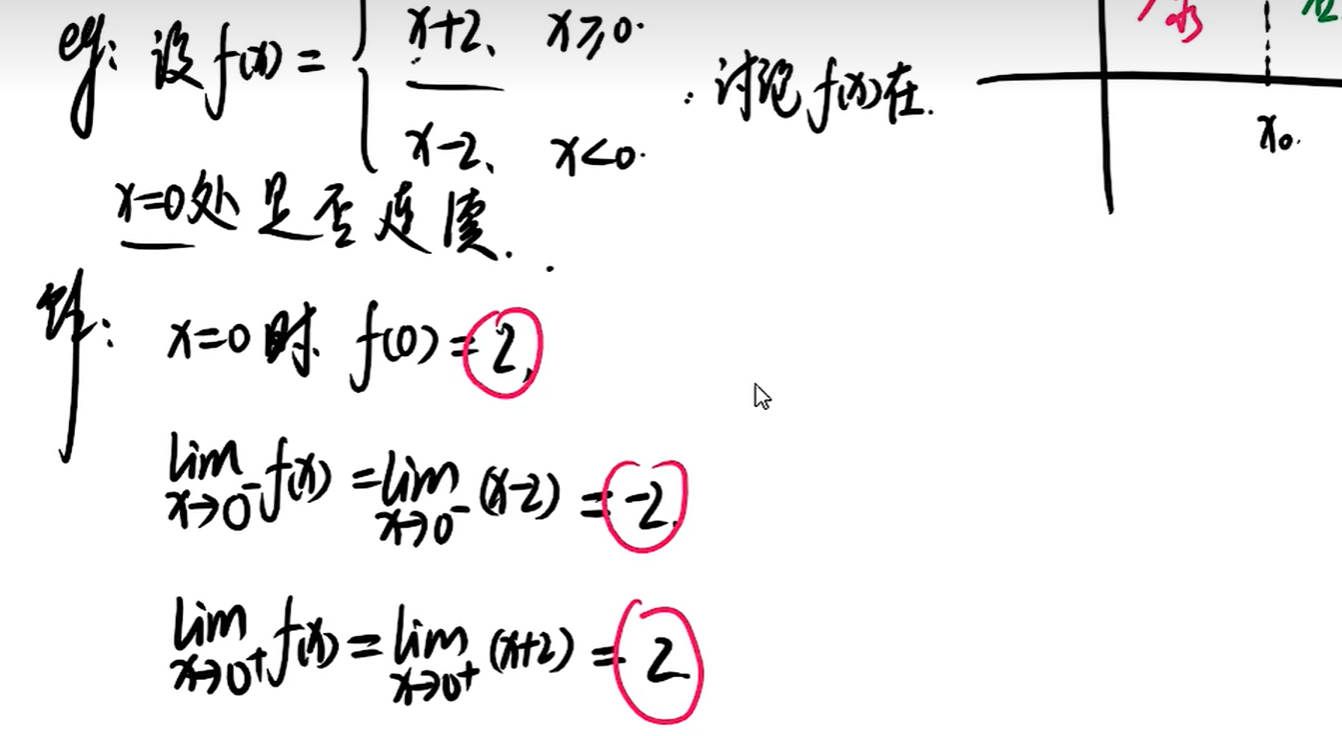 eg: 设 f(x) = { x+2、 x≥0.
x-2、 x<0.
讨论 f(x)在.
x=0处是否连续.
解: x=0时. f(0)=2,
lim x→0⁻ f(x) = lim x→0⁻ (x-2) = -2.
lim x→0⁺ f(x) = lim x→0⁺ (x+2) = 2
x₀.